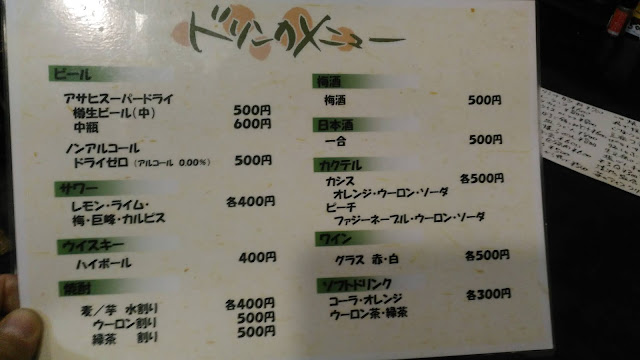 ドリンクメニュー
ビール
アサヒスーパードライ
樽生ビール(中) 500円
中瓶 600円
ノンアルコール
ドライゼロ (アルコール 0.00%) 500円
サワー
レモン・ライム・ 各400円
梅・巨峰・カルピス
ウイスキー
ハイボール 400円
焼酎
麦/芋 水割り 各400円
ウーロン割り 500円
緑茶 割り 500円
梅酒
梅酒 500円
日本酒
一合 500円
カクテル
カシス 各500円
オレンジ・ウーロン・ソーダ
ピーチ
ファジーネーブル・ウーロン・ソーダ
ワイン
グラス 赤・白 各500円
ソフトドリンク
コーラ・オレンジ 各300円
ウーロン茶・緑茶